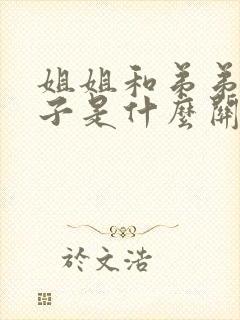 姐姐和弟弟
子是什麼關
於文浩